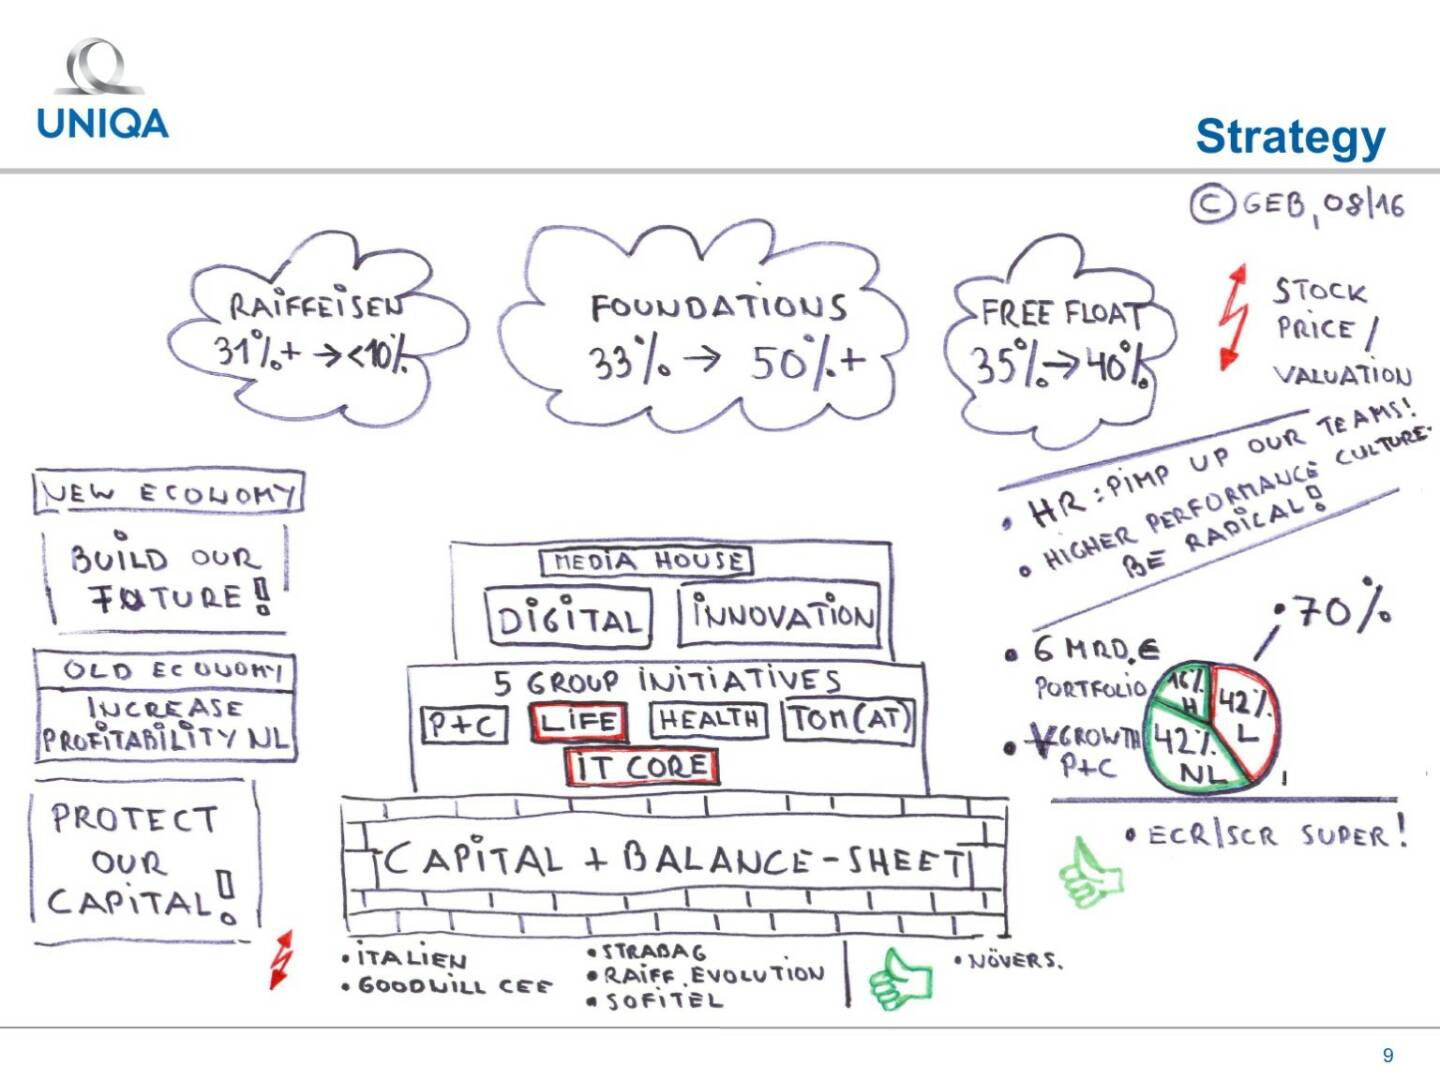 UNIQA
Strategy
© GEB, 08/16
RAIFFEISEN
31%+ → <10%
FOUNDATIONS
33% → 50%+
FREE FLOAT
35% → 40%
STOCK
PRICE /
VALUATION
• HR: PIMP UP OUR TEAMS!
• HIGHER PERFORMANCE CULTURE
BE RADICAL!
NEW ECONOMY
BUILD OUR
FUTURE!
OLD ECONOMY
INCREASE
PROFITABILITY NL
PROTECT
OUR
CAPITAL!
MEDIA HOUSE
DIGITAL
INNOVATION
5 GROUP INITIATIVES
P+C
LIFE
HEALTH
TOM (AT)
IT CORE
CAPITAL + BALANCE-SHEET
• 70%
• 6 MRD. €
PORTFOLIO
• GROWTH
P+C
16%
H
42%
L
42%
NL
• ECR/SCR SUPER!
• ITALIEN
• GOODWILL CEE
• STRABAG
• RAIFF. EVOLUTION
• SOFITEL
• NÖVERS.
9